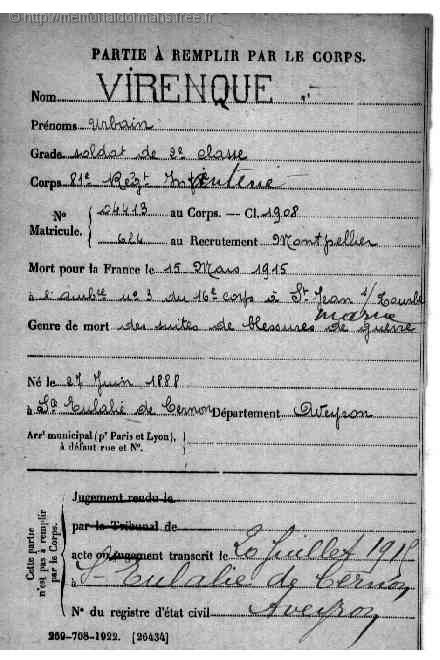 © http://memorialdormans.free.fr
PARTIE À REMPLIR PAR LE CORPS.
Nom VIRENQUE
Prénoms Urbain
Grade soldat de 2e classe
Corps 81e Régt Infanterie
No Matricule. 04413 au Corps. — Cl. 1908
624 au Recrutement Montpellier
Mort pour la France le 15 Mars 1915
à l'ambce no 3 du 16e corps à St Jean s/ Tourbe
Marne
Genre de mort des suites de blessures de guerre
Né le 27 Juin 1888
à Ste Eulalie de Cernon Département Aveyron
Arrt municipal (pr Paris et Lyon),
à défaut rue et No.
Cette partie n'est pas à remplir par le Corps.
Jugement rendu le
par le Tribunal de
acte ou jugement transcrit le 20 Juillet 1915
à Ste Eulalie de Cernon
Aveyron
No du registre d'état civil
269-708-1922. [26434]